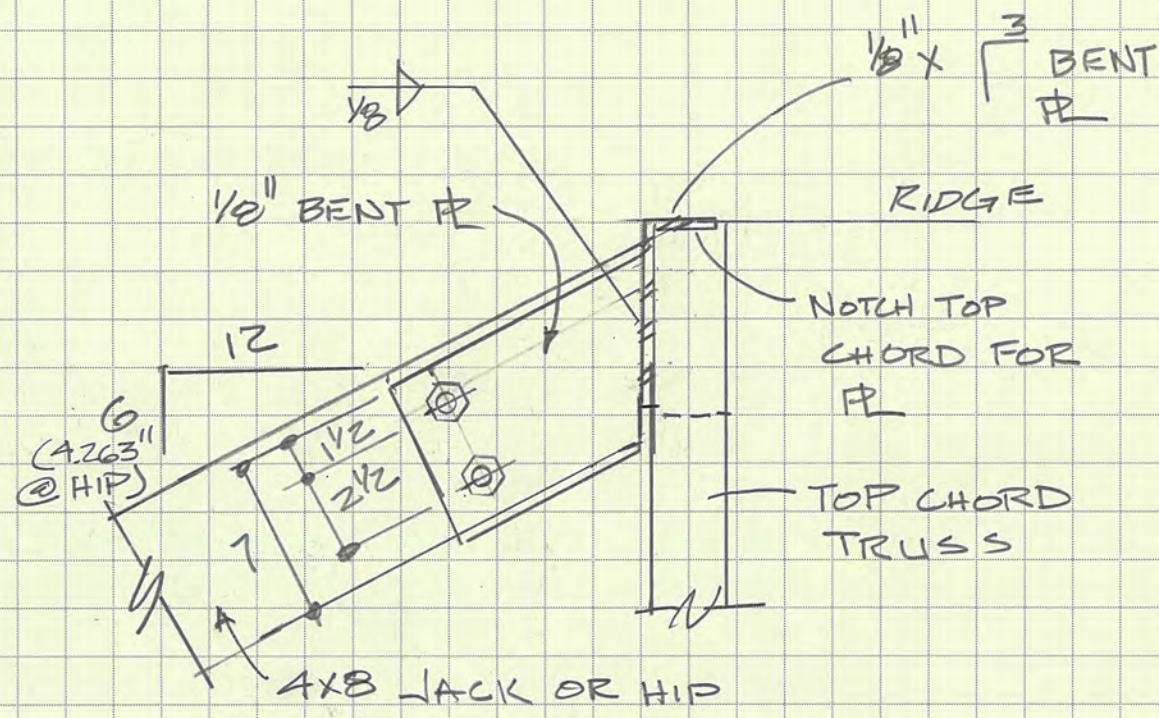 1/8" X 3 BENT
PL
1/8
1/8" BENT PL
RIDGE
NOTCH TOP
CHORD FOR
PL
12
6
(4.263"
@ HIP)
1 1/2
2 1/2
7
TOP CHORD
TRUSS
4X8 JACK OR HIP